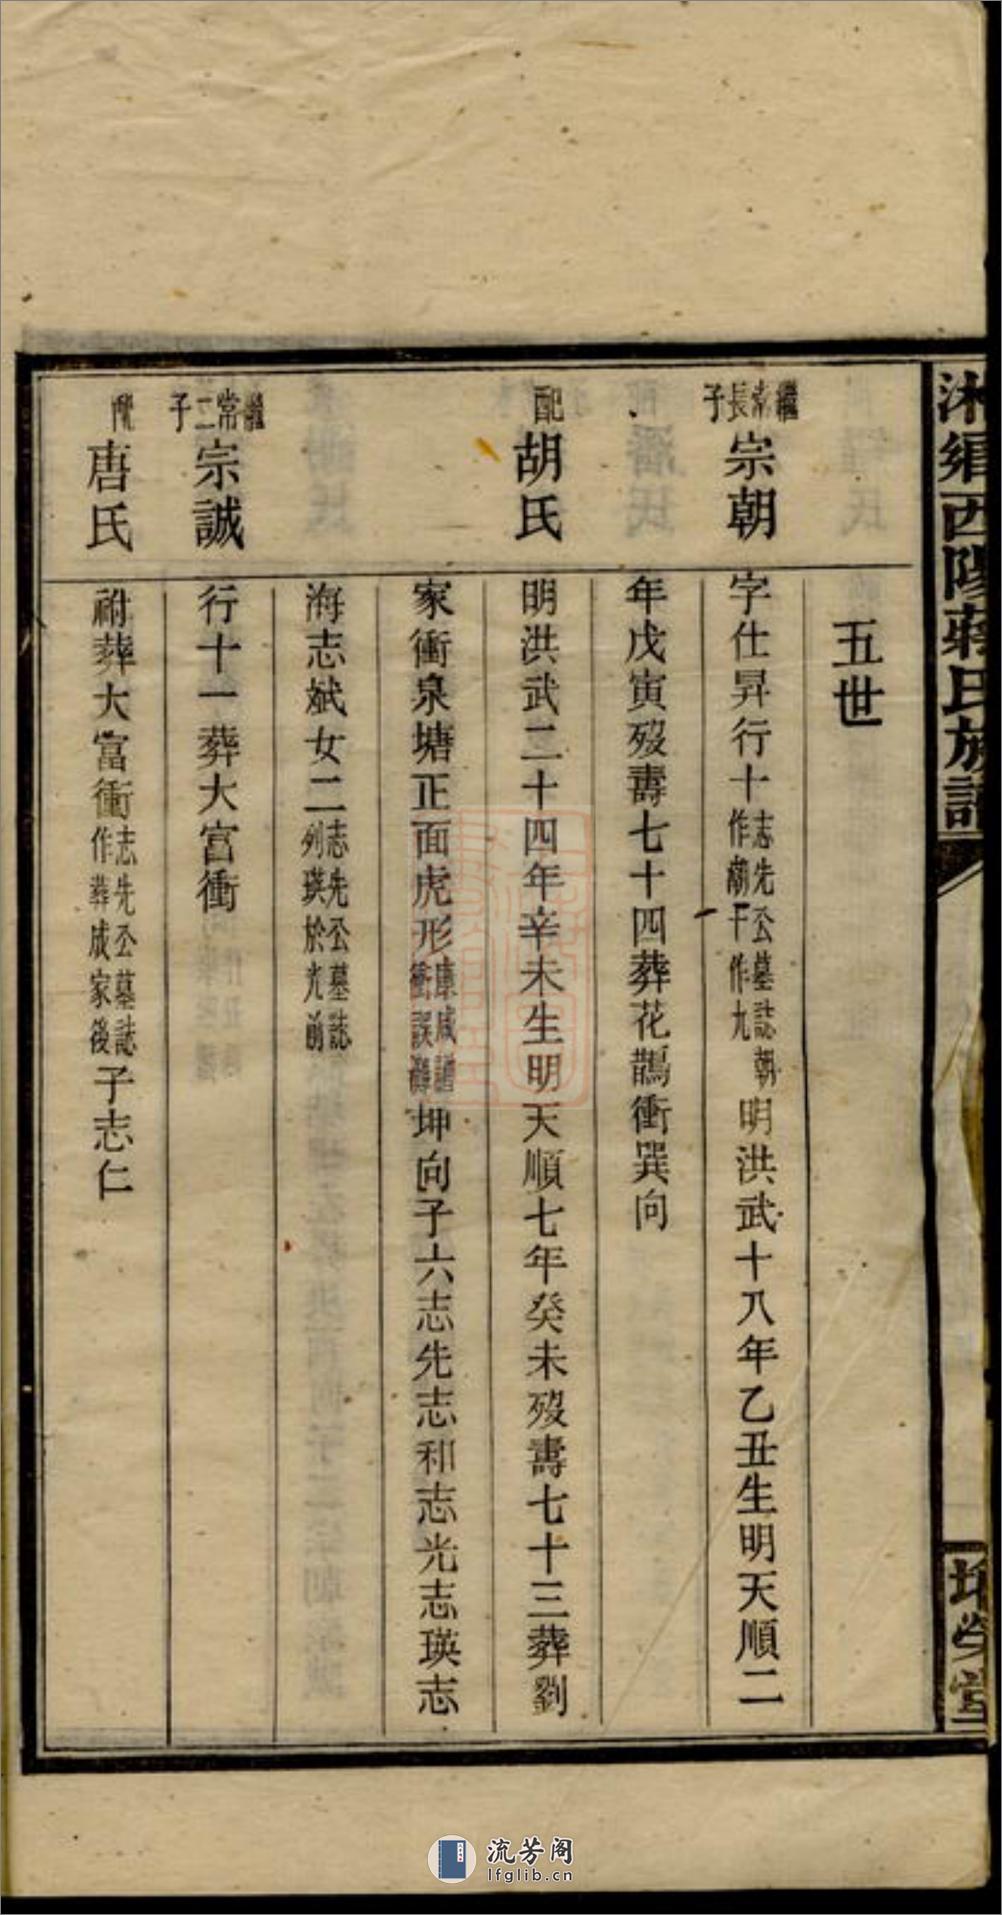 湘鄉西陽蔣氏族譜
堂
五世
繼常長子
宗朝
字仕昇行十志先公墓誌朝作廟十作九明洪武十八年乙丑生明天順二
年戊寅歿壽七十四葬花鵲衝巽向
配
胡氏
明洪武二十四年辛未生明天順七年癸未歿壽七十三葬劉
家衝泉塘正面虎形康咸譜衝誤坤向子六志先志和志光志瑛志
海志斌女二志先公墓誌列瑛於光前
繼常二子
宗誠
行十一葬大富衝
配
唐氏
祔葬大富衝志先公墓誌作葬成家後子志仁
流芳阁
lfglib.cn